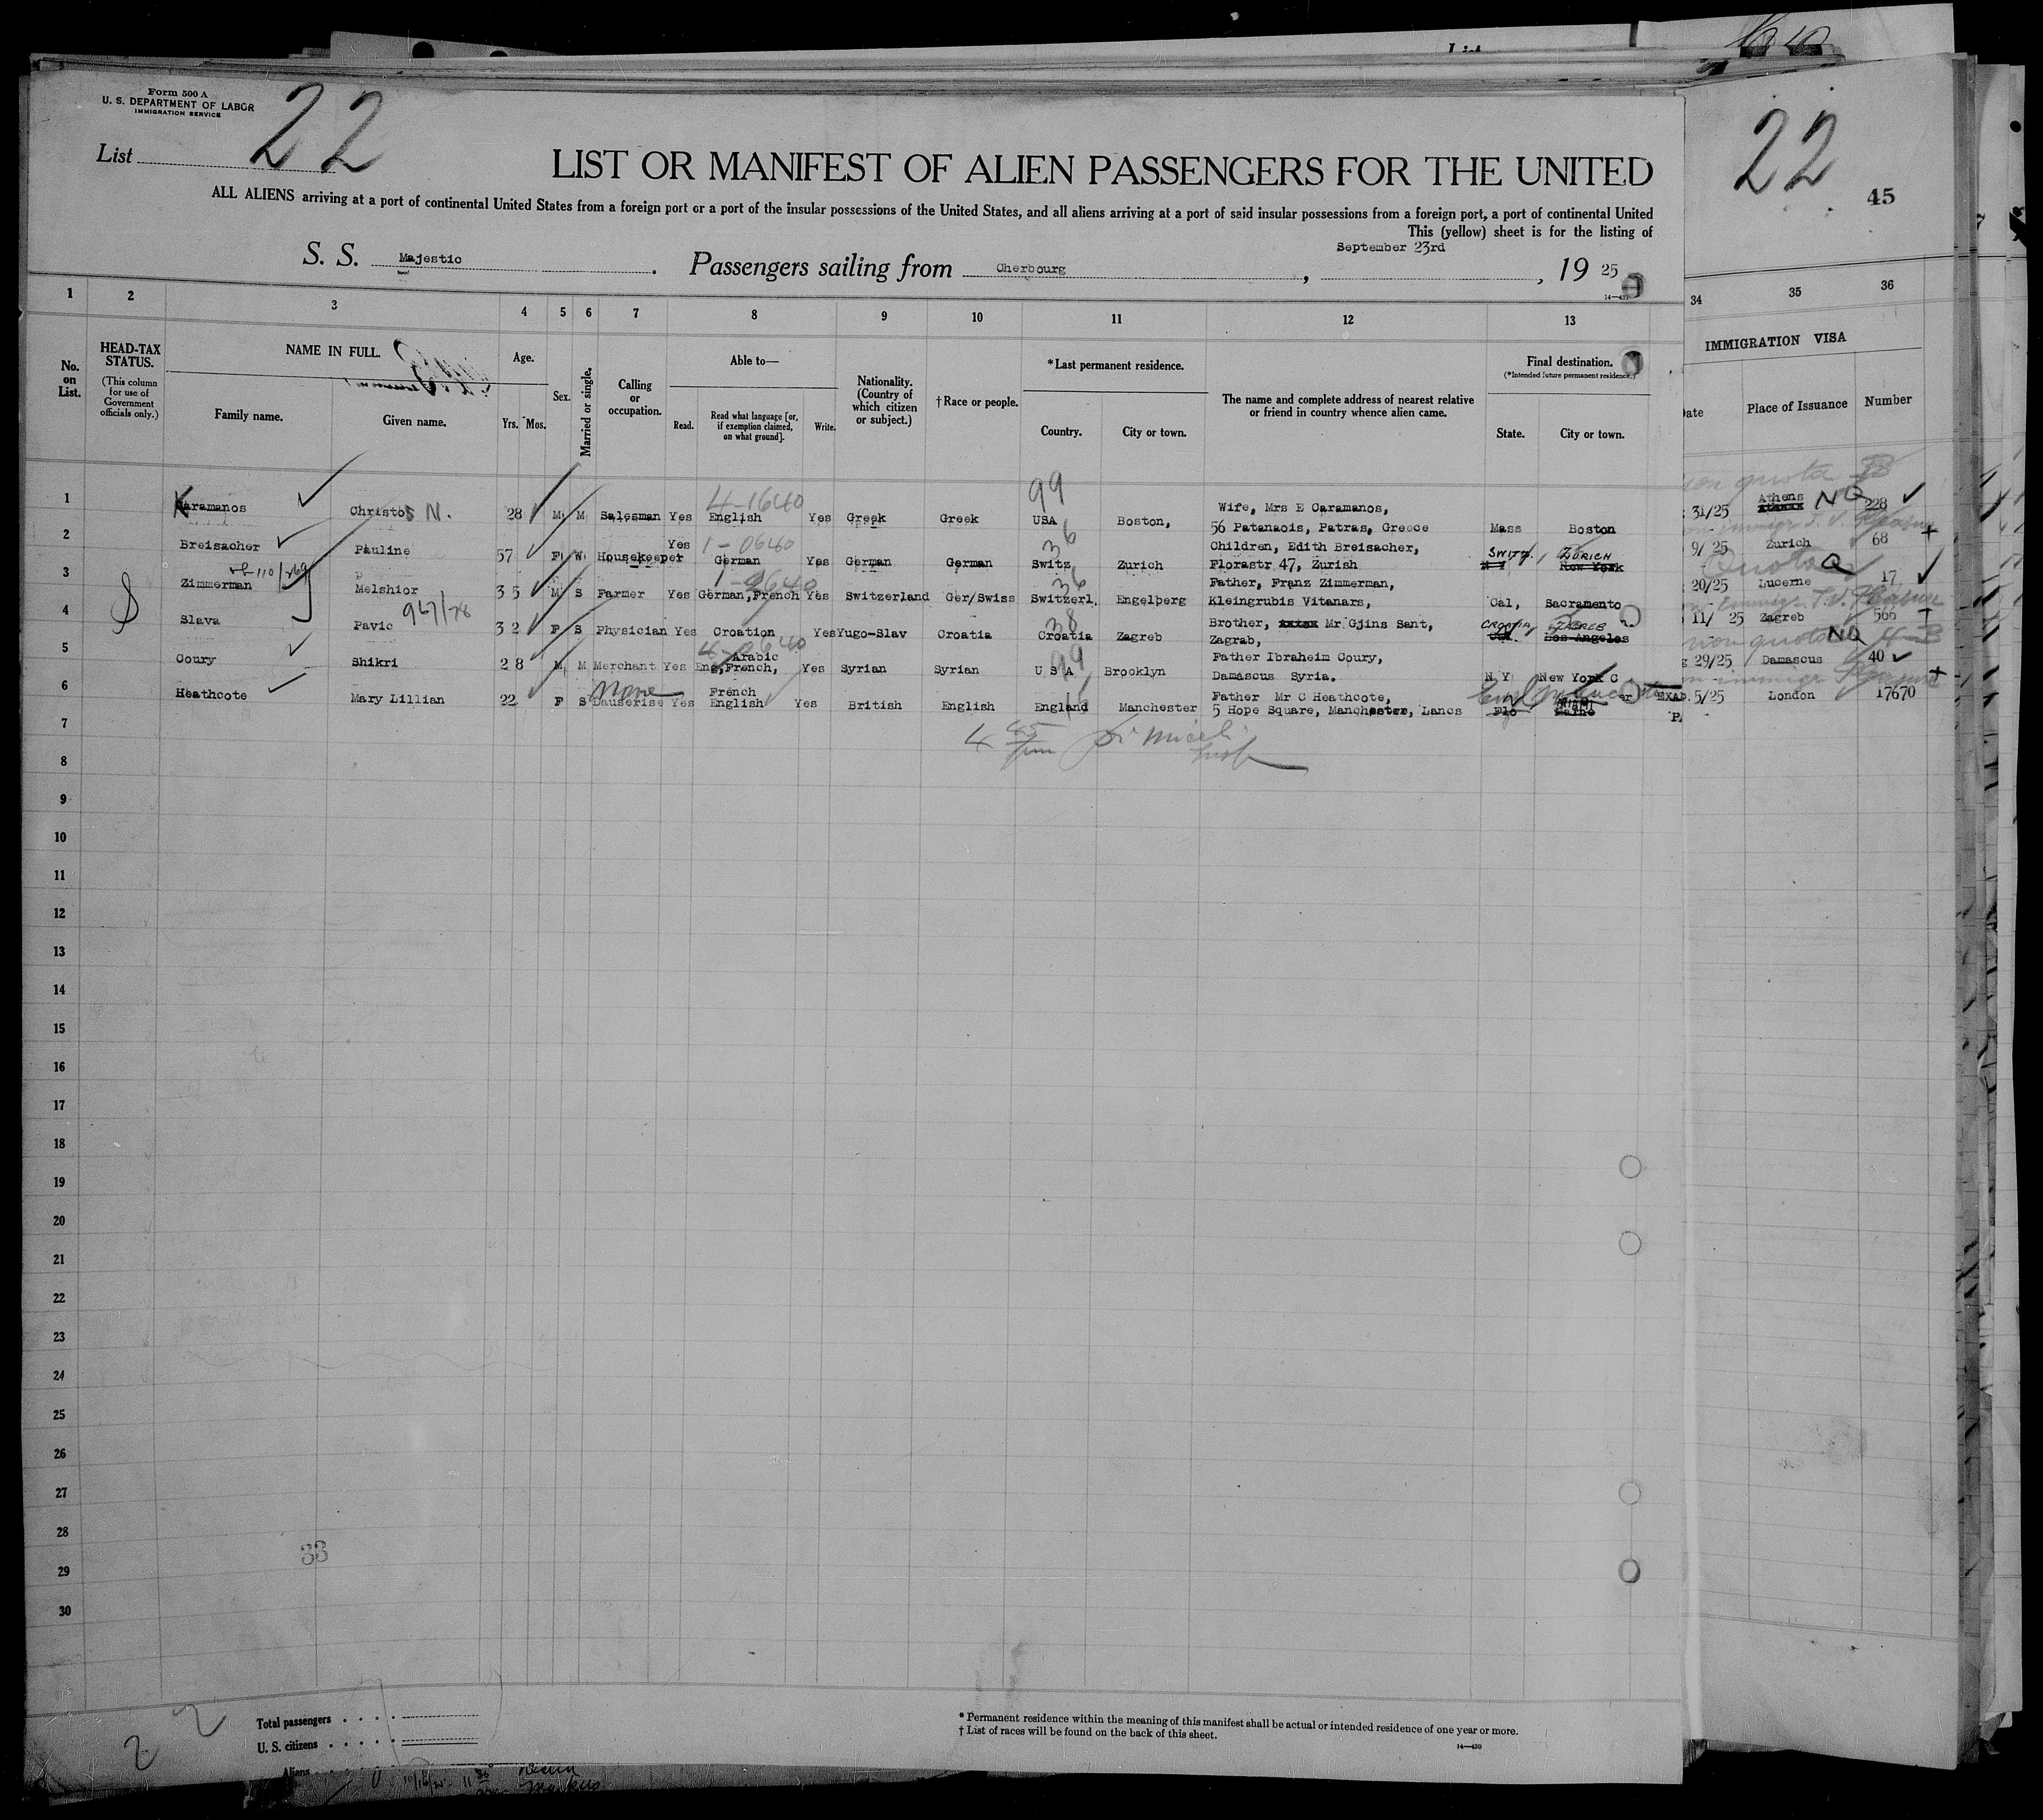 Form 500 A
U. S. DEPARTMENT OF LABOR
IMMIGRATION SERVICE
List 22
LIST OR MANIFEST OF ALIEN PASSENGERS FOR THE UNITED
ALL ALIENS arriving at a port of continental United States from a foreign port or a port of the insular possessions of the United States, and all aliens arriving at a port of said insular possessions from a foreign port, a port of continental United
This (yellow) sheet is for the listing of
S. S. Majestic Passengers sailing from Cherbourg, September 23rd, 19 25
22
45
1 2 3 4 5 6 7 8 9 10 11 12 13 34 35 36
No. on List.
HEAD-TAX STATUS.
(This column for use of Government officials only.)
NAME IN FULL.
Family name. Given name.
Age.
Yrs. Mos.
Sex.
Married or single.
Calling or occupation.
Able to—
Read. Read what language [or, if exemption claimed, on what ground]. Write.
Nationality. (Country of which citizen or subject.)
† Race or people.
*Last permanent residence.
Country. City or town.
The name and complete address of nearest relative or friend in country whence alien came.
Final destination.
(*Intended future permanent residence.)
State. City or town.
IMMIGRATION VISA
Date Place of Issuance Number
1 Karamanos Christos N. 28 M M Salesman Yes English 4-1640 Yes Greek Greek USA 99 Boston, Wife, Mrs E Caramanos, 56 Patanaois, Patras, Greece Mass Boston 31/25 Athens NQ 228
2 Breisacher Pauline 57 F W Housekeeper Yes German 1-0640 Yes German German Switz 36 Zurich Children, Edith Breisacher, Florastr 47, Zurish SWITZ. ZURICH N Y New York 9/ 25 Zurich 68
3 Zimmerman Melshior 35 M S Farmer Yes German,French Yes Switzerland Ger/Swiss Switzerl. 36 Engelberg Father, Franz Zimmerman, Kleingrubis Vitanars, Cal, Sacramento 20/25 Lucerne Q 17
4 Slava Pavic 32 F S Physician Yes Croation Yes Yugo-Slav Croatia Croatia 38 Zagreb Brother, Mr Gjins Sant, Zagrab, CROATIA, ZAGREB Los Angeles 11/ 25 Zagreb 566
5 Coury Shikri 28 M M Merchant Yes Arabic Eng,French, Yes Syrian Syrian U S A 99 Brooklyn Father Ibraheim Coury, Damascus Syria. N Y New York C 29/25 non quota NQ Damascus 40
6 Heathcote Mary Lillian 22 F S None Dauserise Yes French English Yes British English England Manchester Father Mr C Heathcote, 5 Hope Square, Manchester, Lancs Flo 5/25 London 17670
7
8
9
10
11
12
13
14
15
16
17
18
19
20
21
22
23
24
25
26
27
28
33
29
30
Total passengers
U. S. citizens
Aliens
* Permanent residence within the meaning of this manifest shall be actual or intended residence of one year or more.
† List of races will be found on the back of this sheet.
14—430